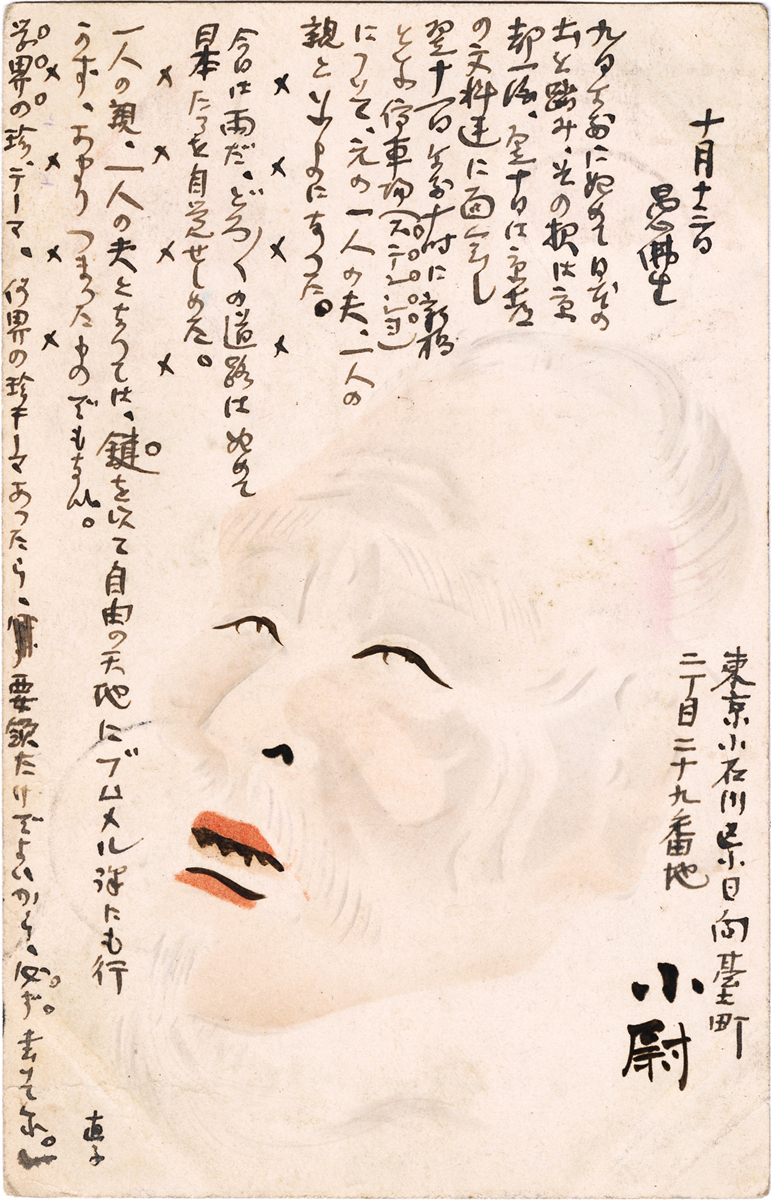 十月十二日
愚佛生
九日午前に始めて日本の
土を踏み、その夜は京
都一泊、翌十日は京都
の文科連に面会し
翌十一日午前十時に新橋
と云ふ停車場(ステンシヨ)
について、元の一人の夫、一人の
親と云ふものになつた。
× × × ×
今日は雨だ、どろ〳〵の道路は始めて
日本たるを自覚せしめた。
× × × ×
一人の親、一人の夫となつては、鍵を以て自由の天地にブムメル譯にも行
かず、あまりつまつたものでもない。
× × × ×
学界の珍テーマ。俗界の珍テーマあつたら、要領だけでよいから、必ず。書て
直子
東京小石川區小日向臺町
二丁目二十九番地
小尉